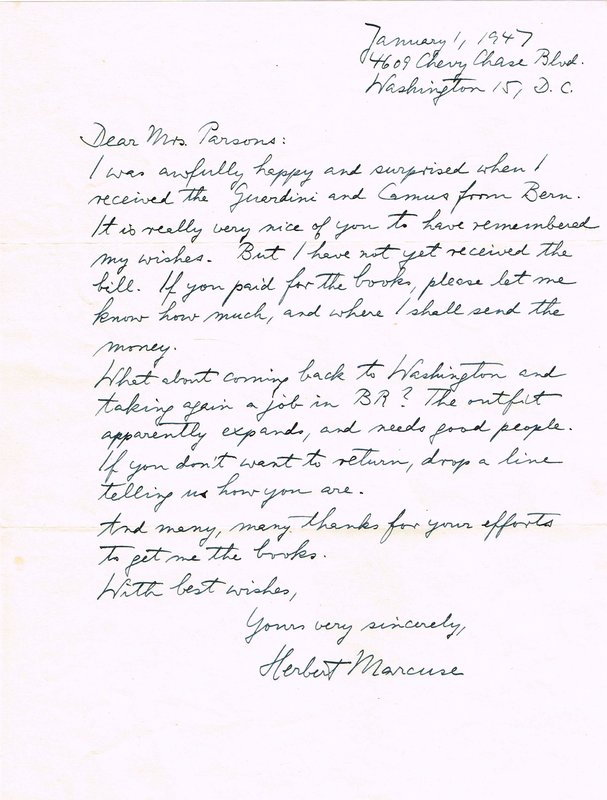 January 1, 1947
4609 Chevy Chase Blvd.
Washington 15, D. C.
Dear Mrs. Parsons:
I was awfully happy and surprised when I
received the Guardini and Camus from Bern.
It is really very nice of you to have remembered
my wishes. But I have not yet received the
bill. If you paid for the books, please let me
know how much, and where I shall send the
money.
What about coming back to Washington and
taking again a job in BR? The outfit
apparently expands, and needs good people.
If you don't want to return, drop a line
telling us how you are.
And many, many thanks for your efforts
to get me the books.
With best wishes,
Yours very sincerely,
Herbert Marcuse